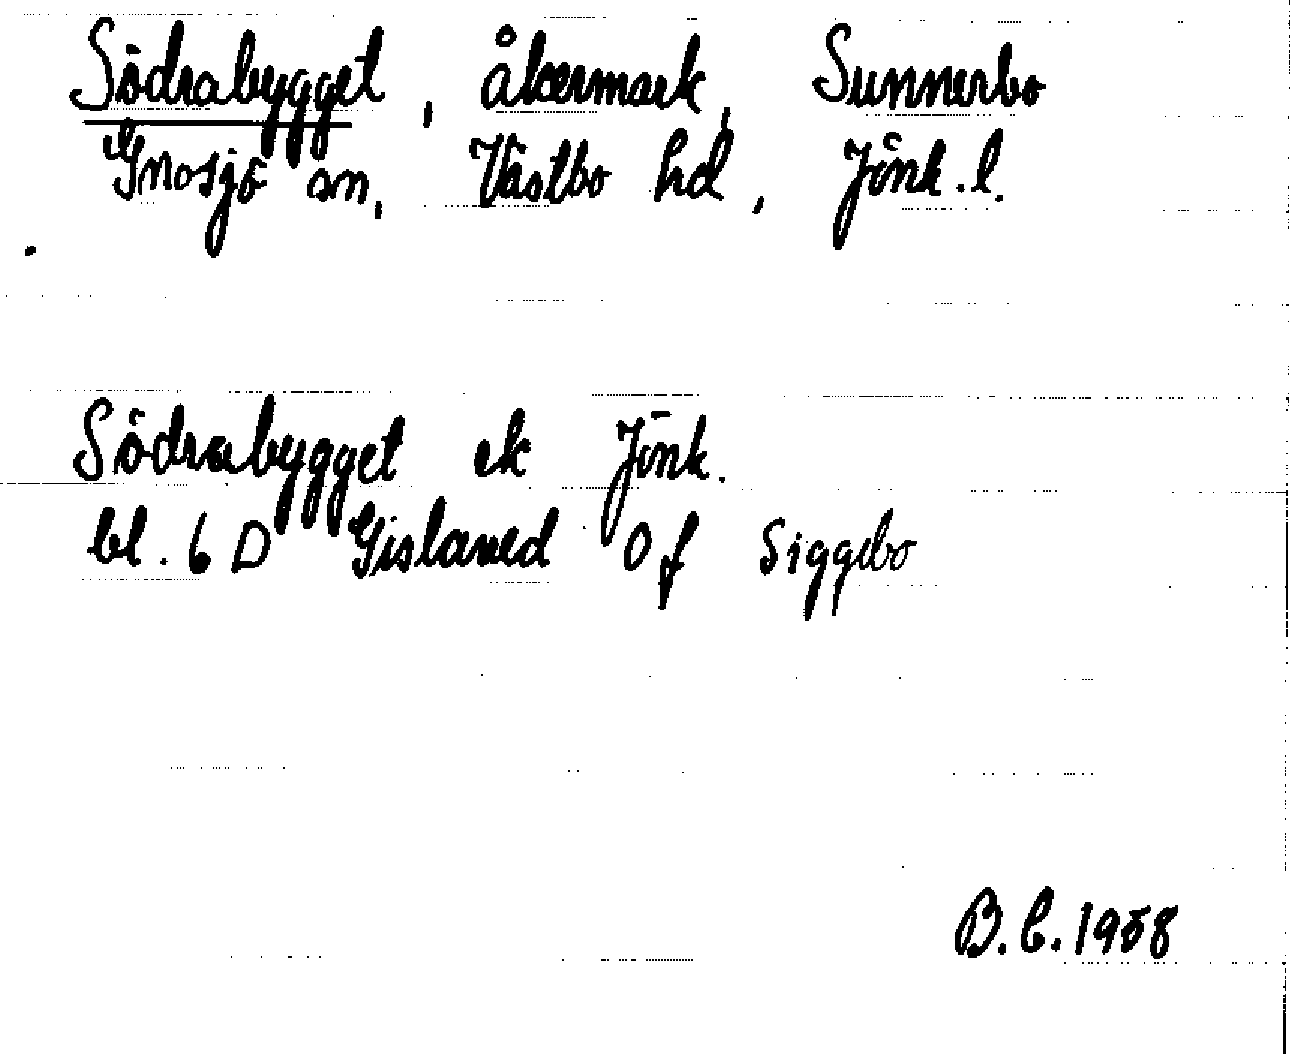 Södrabygget, åkermark, Sunnerbo
Gnosjö sn, Västbo hd, Jönk.l.
Södrabygget ek Jönk.
bl. 6 D Gislaved 0 f Siggebo
B.C. 1958